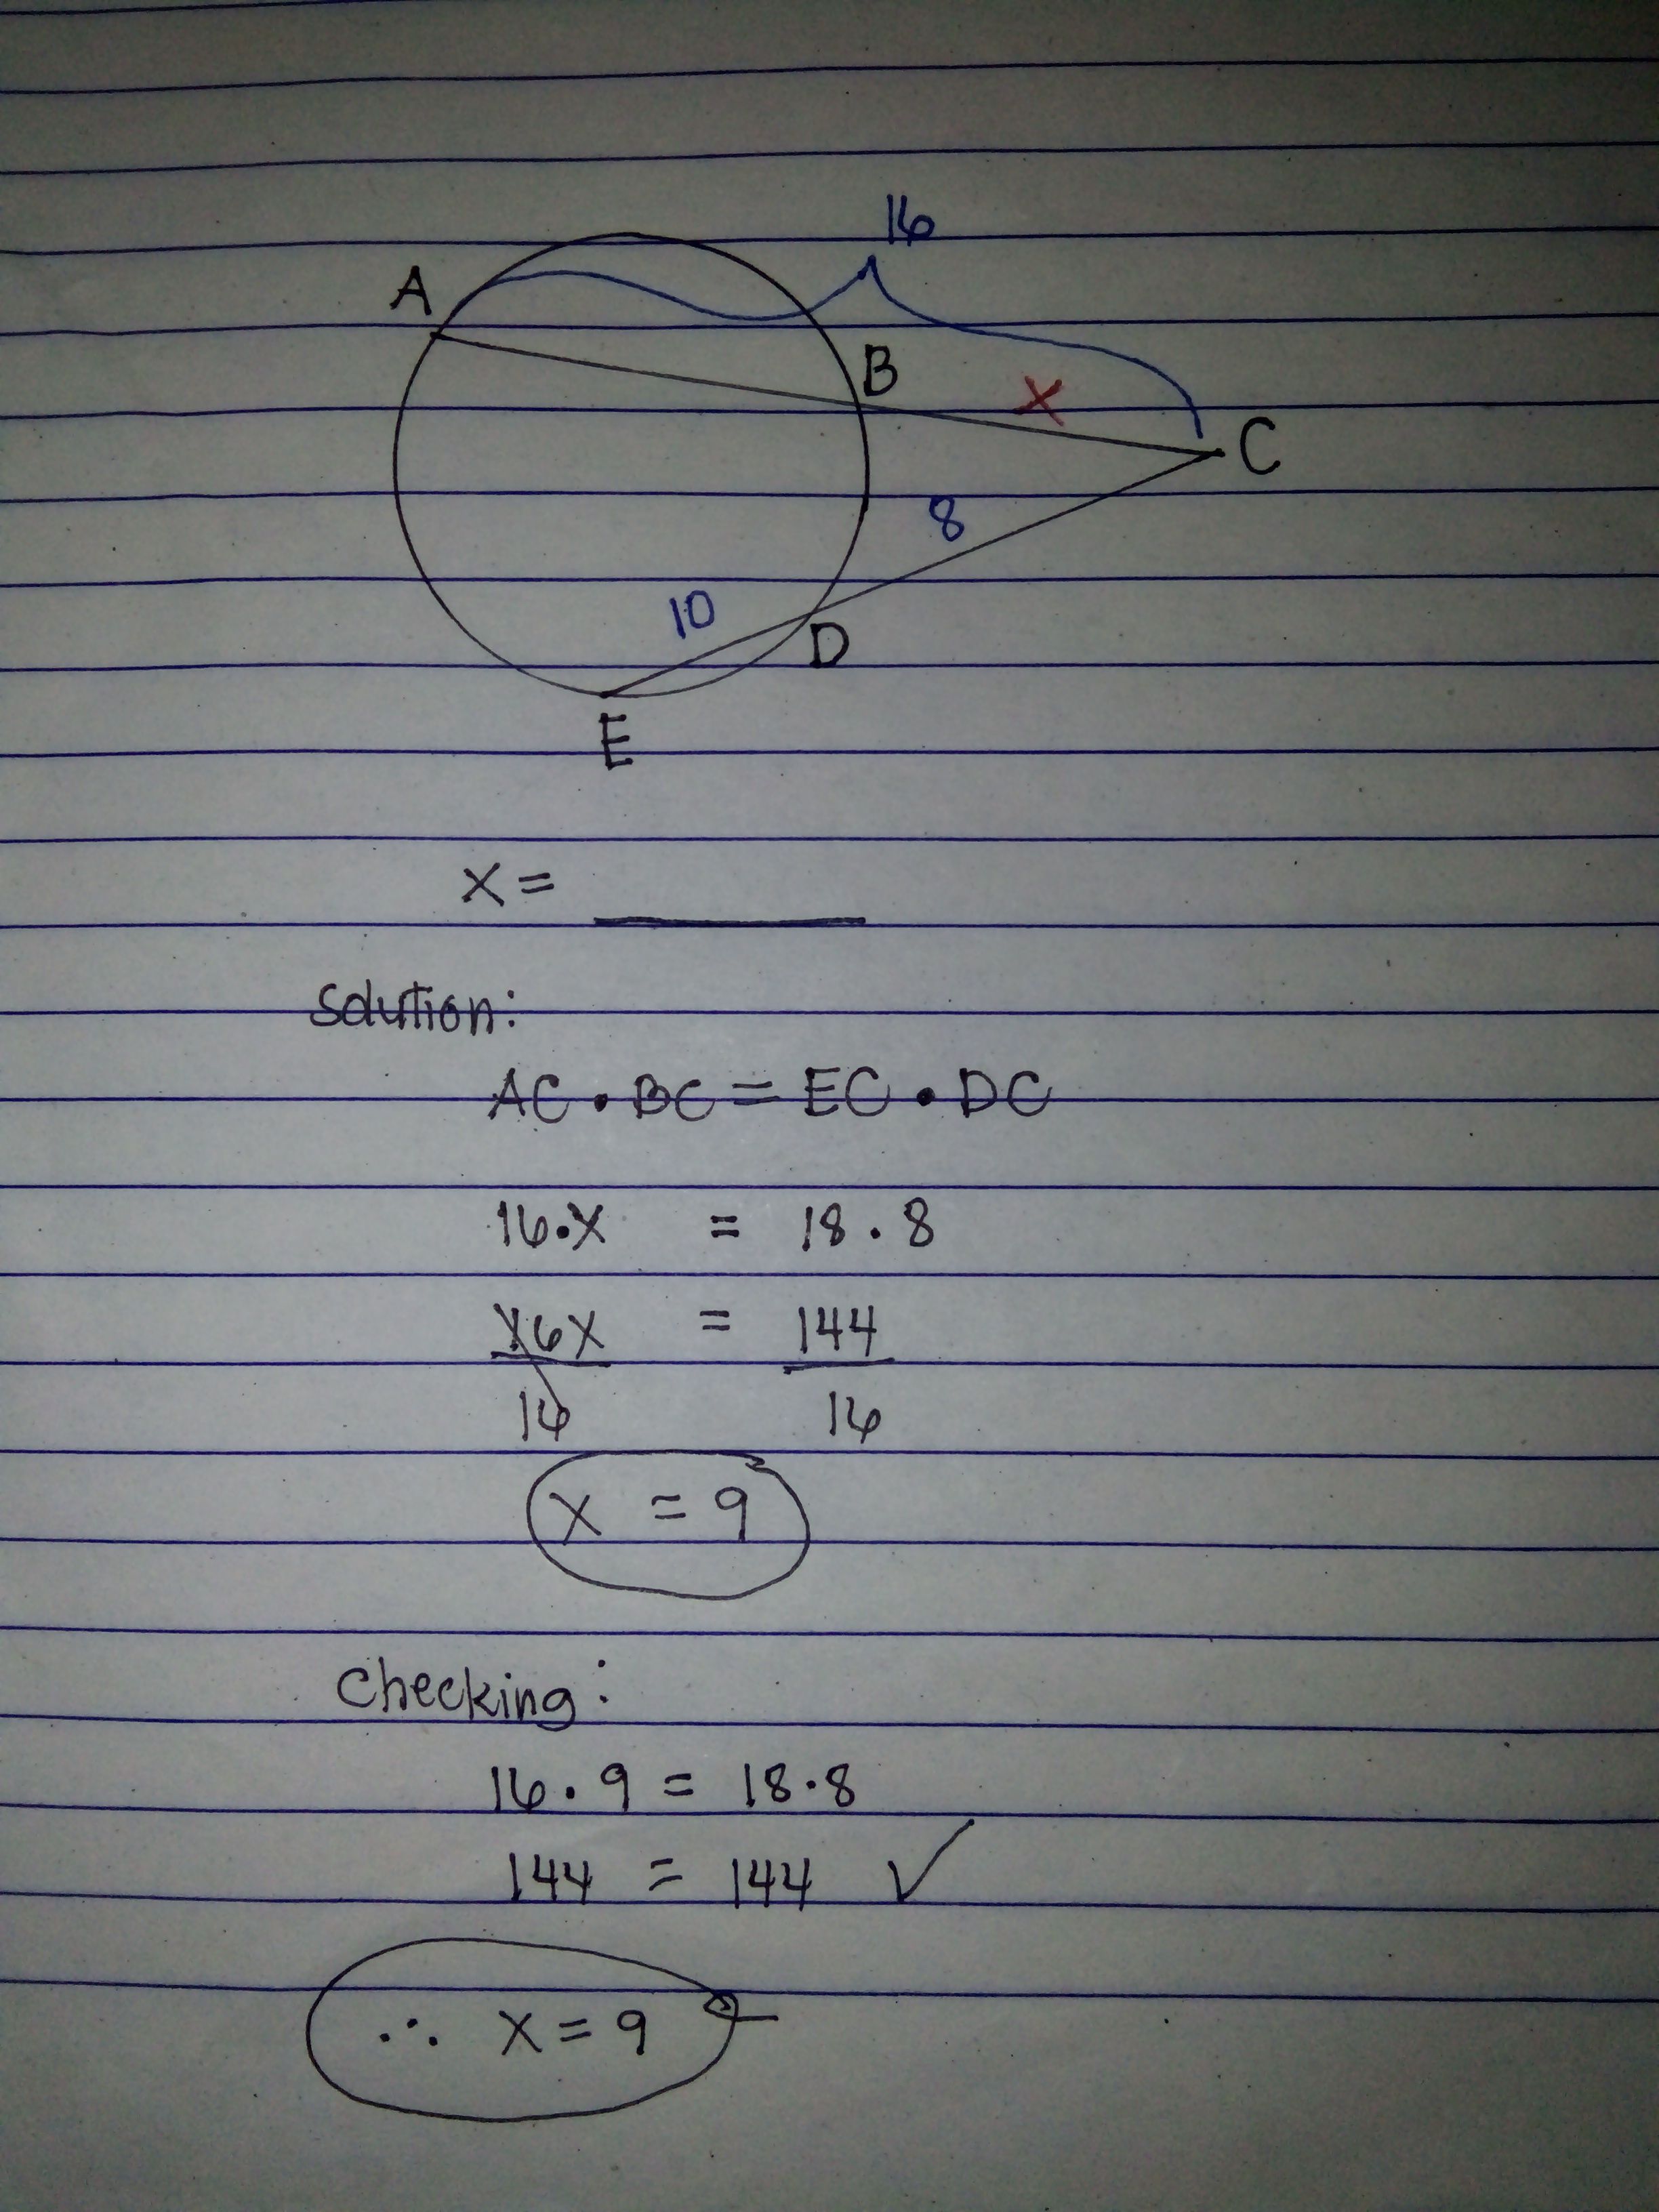 16
A
B
x
C
8
10
D
E
x = ________
Solution:
AC • BC = EC • DC
16•x = 18 . 8
16x = 144
16 16
x = 9
Checking:
16 . 9 = 18.8
144 = 144 ✓
∴ x = 9